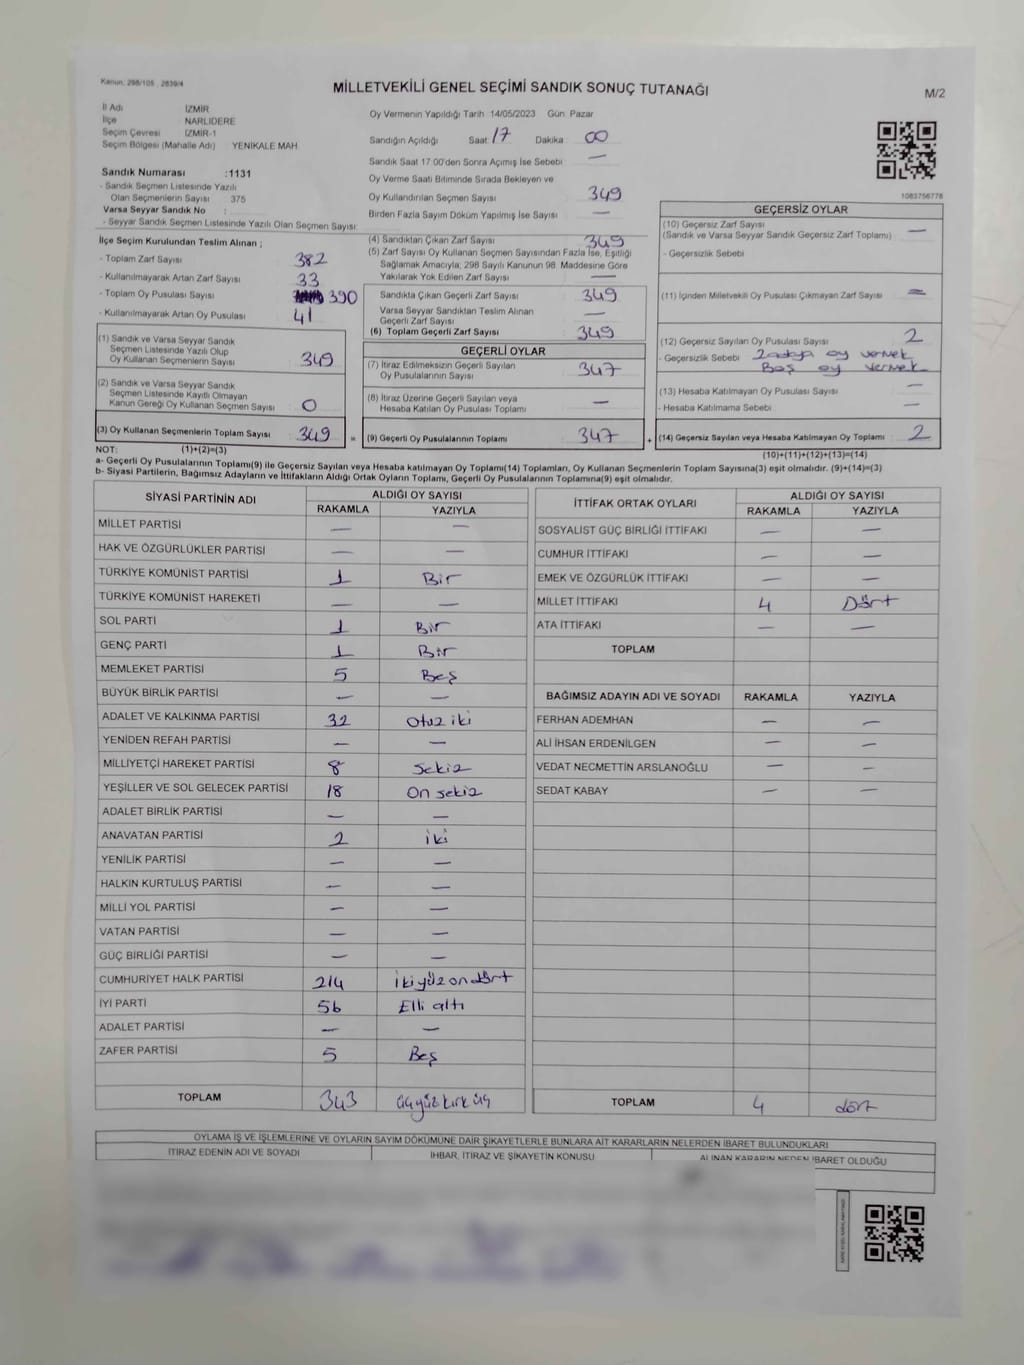 Kanun: 298/105 2839/4
MİLLETVEKİLİ GENEL SEÇİMİ SANDIK SONUÇ TUTANAĞI
M/2
İl Adı İZMİR
İlçe NARLIDERE
Seçim Çevresi İZMİR-1
Seçim Bölgesi (Mahalle Adı) YENİKALE MAH.
Sandık Numarası :1131
- Sandık Seçmen Listesinde Yazılı
Olan Seçmenlerin Sayısı 375
Varsa Seyyar Sandık No :
- Seyyar Sandık Seçmen Listesinde Yazılı Olan Seçmen Sayısı:
Oy Vermenin Yapıldığı Tarih 14/05/2023 Gün: Pazar
Sandığın Açıldığı Saat 17 Dakika 00
Sandık Saat 17:00'den Sonra Açımış İse Sebebi —
Oy Verme Saati Bitiminde Sırada Bekleyen ve
Oy Kullandırılan Seçmen Sayısı 349
Birden Fazla Sayım Döküm Yapılmış İse Sayısı —
1083756778
İlçe Seçim Kurulundan Teslim Alınan ;
- Toplam Zarf Sayısı 382
- Kullanılmayarak Artan Zarf Sayısı 33
- Toplam Oy Pusulası Sayısı 390
- Kullanılmayarak Artan Oy Pusulası 41
(1) Sandık ve Varsa Seyyar Sandık
Seçmen Listesinde Yazılı Olup
Oy Kullanan Seçmenlerin Sayısı 349
(2) Sandık ve Varsa Seyyar Sandık
Seçmen Listesinde Kayıtlı Olmayan
Kanun Gereği Oy Kullanan Seçmen Sayısı 0
(3) Oy Kullanan Seçmenlerin Toplam Sayısı 349 =
(1)+(2)=(3)
(4) Sandıktan Çıkan Zarf Sayısı 349
(5) Zarf Sayısı Oy Kullanan Seçmen Sayısından Fazla İse, Eşitliği
Sağlamak Amacıyla; 298 Sayılı Kanunun 98. Maddesine Göre
Yakılarak Yok Edilen Zarf Sayısı —
Sandıkta Çıkan Geçerli Zarf Sayısı 349
Varsa Seyyar Sandıktan Teslim Alınan
Geçerli Zarf Sayısı —
(6) Toplam Geçerli Zarf Sayısı 349
GEÇERLİ OYLAR
(7) İtiraz Edilmeksizin Geçerli Sayılan
Oy Pusulalarının Sayısı 347
(8) İtiraz Üzerine Geçerli Sayılan veya
Hesaba Katılan Oy Pusulası Toplamı —
(9) Geçerli Oy Pusulalarının Toplamı 347 +
GEÇERSİZ OYLAR
(10) Geçersiz Zarf Sayısı
(Sandık ve Varsa Seyyar Sandık Geçersiz Zarf Toplamı) —
- Geçersizlik Sebebi
(11) İçinden Milletvekili Oy Pusulası Çıkmayan Zarf Sayısı —
(12) Geçersiz Sayılan Oy Pusulası Sayısı 2
- Geçersizlik Sebebi 2 adaya oy vermek
Boş oy vermek
(13) Hesaba Katılmayan Oy Pusulası Sayısı —
- Hesaba Katılmama Sebebi —
(14) Geçersiz Sayılan veya Hesaba Katılmayan Oy Toplamı 2
(10)+(11)+(12)+(13)=(14)
NOT:
a- Geçerli Oy Pusulalarının Toplamı(9) ile Geçersiz Sayılan veya Hesaba katılmayan Oy Toplamı(14) Toplamları, Oy Kullanan Seçmenlerin Toplam Sayısına(3) eşit olmalıdır. (9)+(14)=(3)
b- Siyasi Partilerin, Bağımsız Adayların ve İttifakların Aldığı Ortak Oyların Toplamı, Geçerli Oy Pusulalarının Toplamına(9) eşit olmalıdır.
SİYASİ PARTİNİN ADI ALDIĞI OY SAYISI
RAKAMLA YAZIYLA
MİLLET PARTİSİ — —
HAK VE ÖZGÜRLÜKLER PARTİSİ — —
TÜRKİYE KOMÜNİST PARTİSİ 1 Bir
TÜRKİYE KOMÜNİST HAREKETİ — —
SOL PARTİ 1 Bir
GENÇ PARTİ 1 Bir
MEMLEKET PARTİSİ 5 Beş
BÜYÜK BİRLİK PARTİSİ — —
ADALET VE KALKINMA PARTİSİ 32 Otuz iki
YENİDEN REFAH PARTİSİ — —
MİLLİYETÇİ HAREKET PARTİSİ 8 Sekiz
YEŞİLLER VE SOL GELECEK PARTİSİ 18 On sekiz
ADALET BİRLİK PARTİSİ — —
ANAVATAN PARTİSİ 2 iki
YENİLİK PARTİSİ — —
HALKIN KURTULUŞ PARTİSİ — —
MİLLİ YOL PARTİSİ — —
VATAN PARTİSİ — —
GÜÇ BİRLİĞİ PARTİSİ — —
CUMHURİYET HALK PARTİSİ 214 İkiyüz ondört
İYİ PARTİ 56 Elli altı
ADALET PARTİSİ — —
ZAFER PARTİSİ 5 Beş
TOPLAM 343 üçyüz kırk üç
İTTİFAK ORTAK OYLARI ALDIĞI OY SAYISI
RAKAMLA YAZIYLA
SOSYALİST GÜÇ BİRLİĞİ İTTİFAKI — —
CUMHUR İTTİFAKI — —
EMEK VE ÖZGÜRLÜK İTTİFAKI — —
MİLLET İTTİFAKI 4 Dört
ATA İTTİFAKI — —
TOPLAM
BAĞIMSIZ ADAYIN ADI VE SOYADI RAKAMLA YAZIYLA
FERHAN ADEMHAN — —
ALİ İHSAN ERDENİLGEN — —
VEDAT NECMETTİN ARSLANOĞLU — —
SEDAT KABAY — —
TOPLAM 4 dört
OYLAMA İŞ VE İŞLEMLERİNE VE OYLARIN SAYIM DÖKÜMÜNE DAİR ŞİKAYETLERLE BUNLARA AİT KARARLARIN NELERDEN İBARET BULUNDUKLARI
İTİRAZ EDENİN ADI VE SOYADI İHBAR, İTİRAZ VE ŞİKAYETİN KONUSU ALINAN KARARIN NEDEN İBARET OLDUĞU